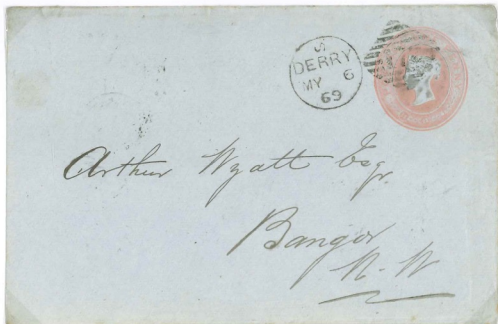 S
DERRY
MY 6
69
Arthur Wyatt Esqr.
Bangor
N. W